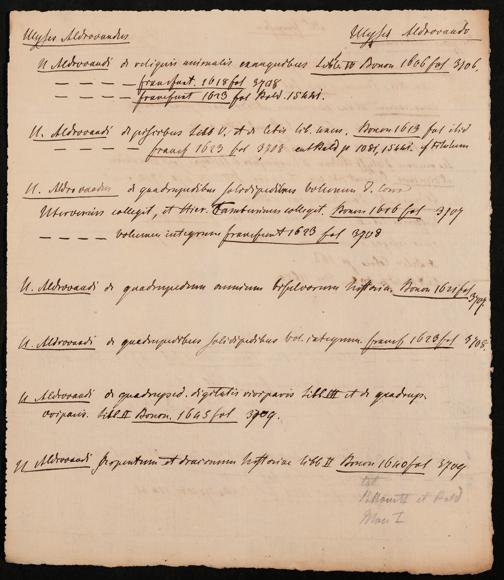 Ulysses Aldrovandus Ulysses Aldrovandus
U Aldrovandi de reliquis animalis exanguibus Libb IV Bonon 1606 fol 3706.
— — — — francfurt. 1618 fol 3708
— — — — francfurt 1623 fol Bald. 1544.
U. Aldrovandi de piscibus Libb V. et de Cetis lib. unus. Bonon 1613 fol
— — — — francf 1623 fol 3708 Bald p 1081,
U. Aldrovandus de quadrupedibus solidipedibus volumen
Uterverius collegit, et Hier. Tamburinus collegit. Bonon 1616 fol 3707
— — — — volumen integrum francfurt 1623 fol 3708
U. Aldrovandi de quadrupedum omnium bisulcorum historia. Bonon 1621 fol 3707.
U. Aldrovandi de quadrupedibus solidipedibus vol. integrum. francf 1623 fol 3708.
U Aldrovandi de quadruped. digitatis viviparis Libb III et de quadrup.
oviparis. Libb II Bonon. 1645 fol 3709.
U Aldrovandi serpentum et draconum historiae libb II Bonon 1640 fol 3709
et Bald